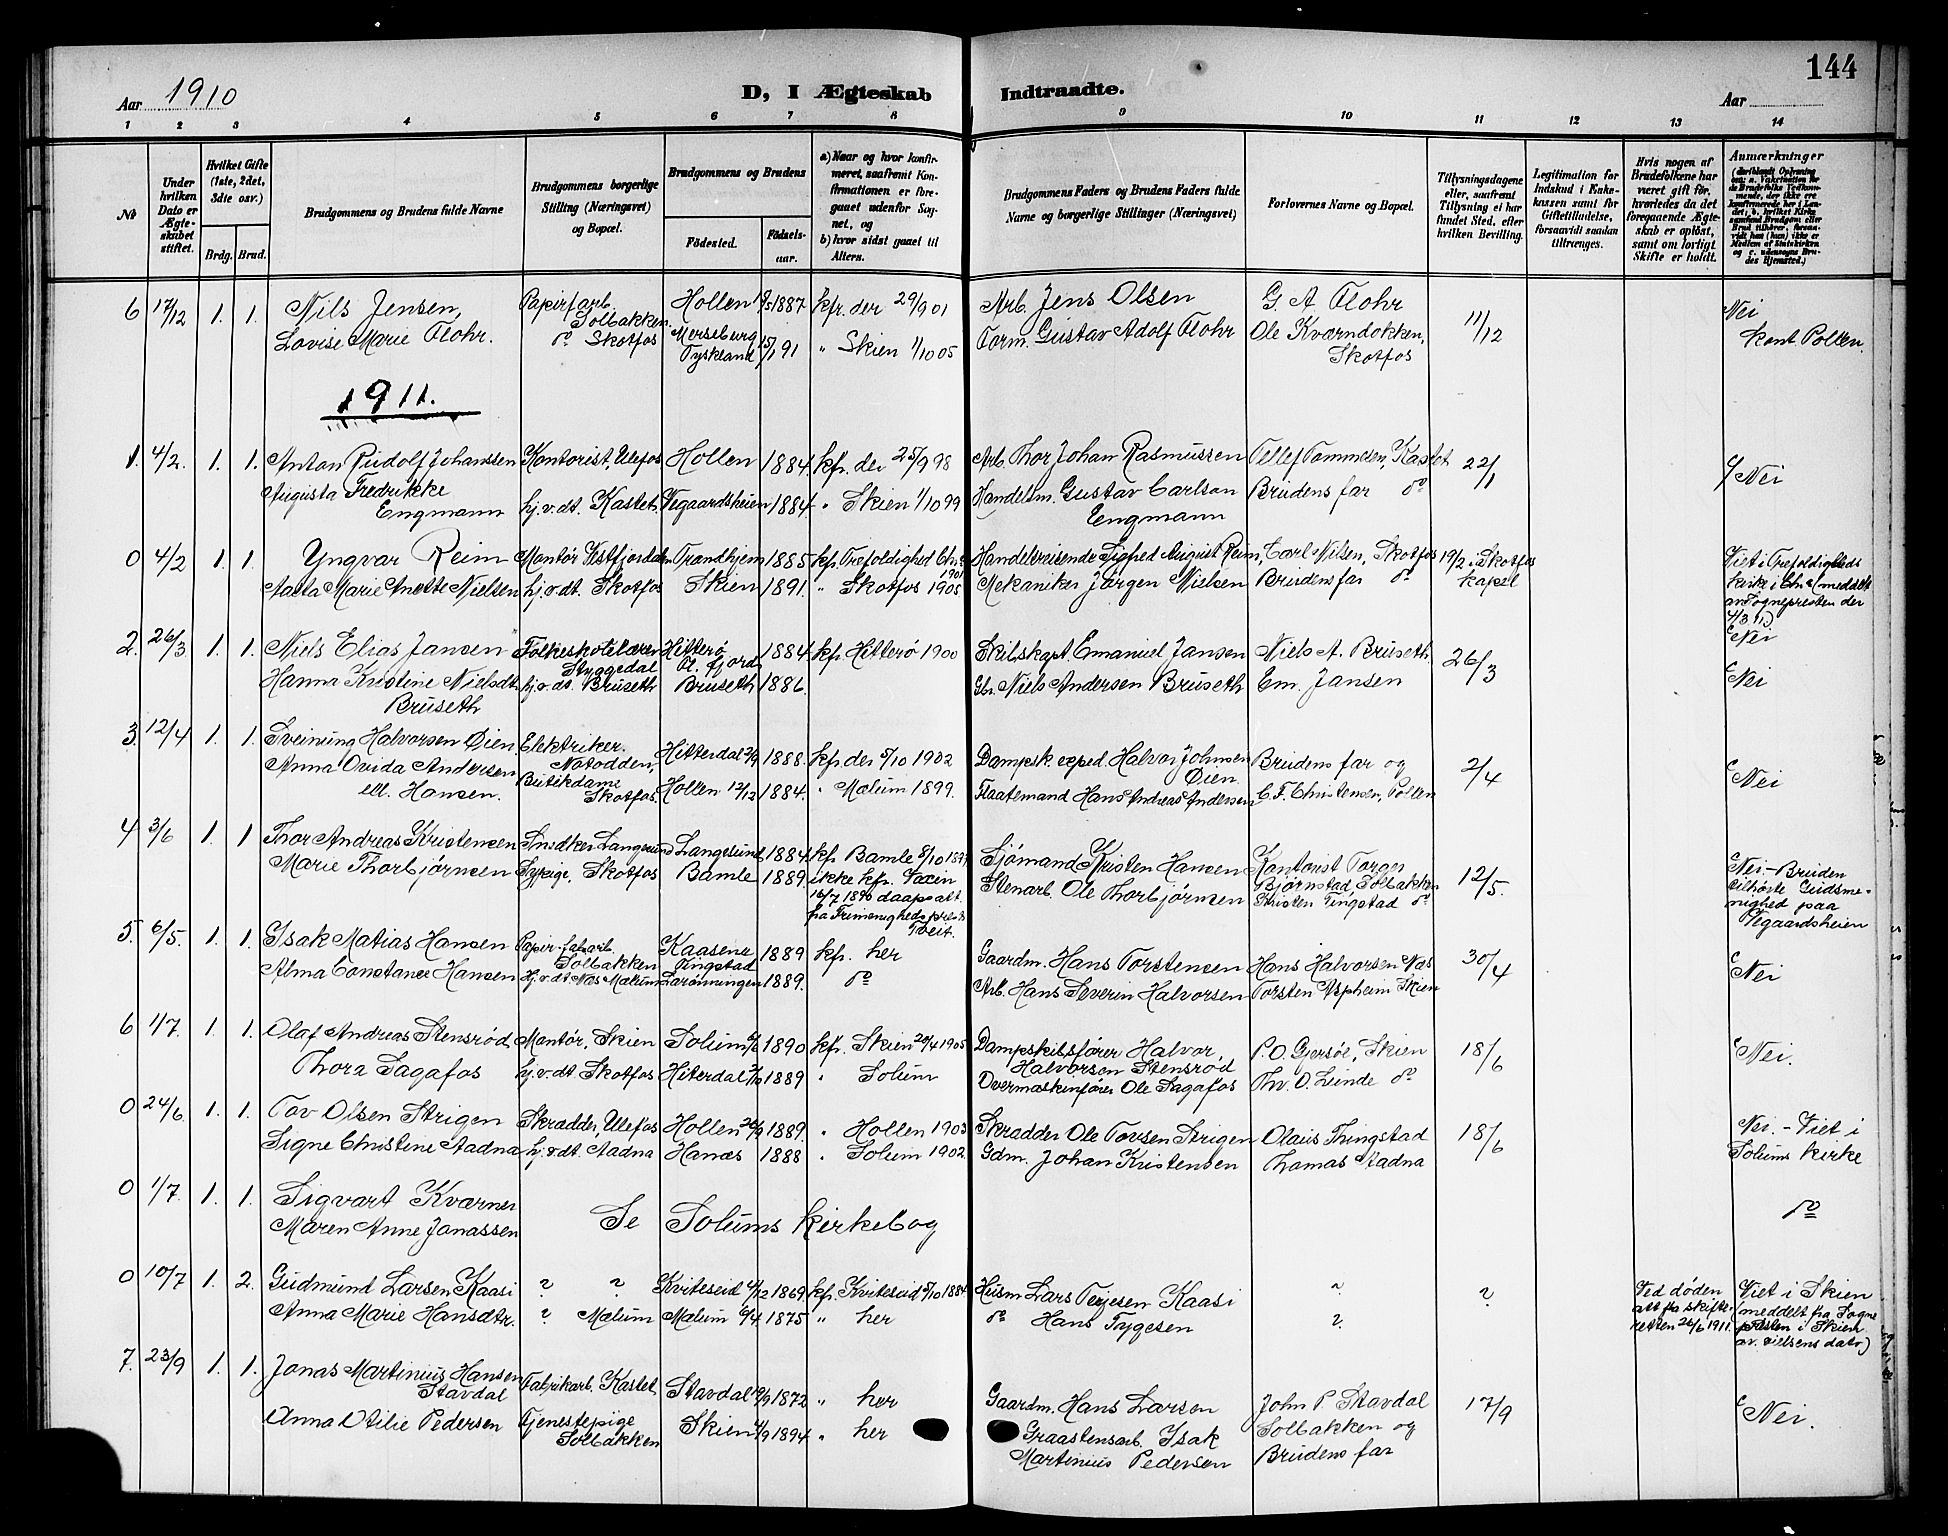 144
Aar 1910
D, I Ægteskab Indtraadte.
Aar
1 2 3 4 5 6 7 8 9 10 11 12 13 14
No
Under hvilken Dato er Ægteskabet stiftet.
Hvilket Gifte (1ste, 2det, 3die osv.)
Brdg. Brud.
Brudgommens og Brudens fulde Navne
Brudgommens borgerlige Stilling (Næringsvei) og Bopæl.
Brudgommens og Brudens
Fødested.
Fødselsaar.
a) Naar og hvor konfirmeret, saafremt Konfirmationen er foregaaet udenfor Sognet, og
b) hvor sidst gaaet til Alters.
Brudgommens Faders og Brudens Faders fulde Navne og borgerlige Stillinger (Næringsvei)
Forlovernes Navne og Bopæl.
Tillysningsdagene eller, saafremt Tillysning ei har fundet Sted, efter hvilken Bevilling.
Legitimation for Indskud i Enkekassen samt for Giftetilladelse, forsaavidt saadan tiltrænges.
Hvis nogen af Brudefolkene har været gift før, hvorledes da det foregaaende Ægteskab er opløst, samt om lovligt Skifte er holdt.
Anmærkninger
6 17/12 1. 1. Nils Jensen, Papirfarb. Solbakken Hollen 1887 kfr. der 29/9 01 Arb. Jens Olsen G. A. Flohr 11/12 Nei
Lovise Marie Flohr. do Skotfos Merseburg Tyskland 15/1 91 " Skien 1/10 05 Form. Gustav Adolf Flohr Ole Kværndokken, Skotfos kont. Pollen.
1911.
1. 4/2. 1. 1. Anton Rudolf Johanssen Kontorist, Ulefos Hollen 1884 kfr. der 25/9 98 Arb. Thor Johan Rasmussen Tellef Tommesen, Kastet 22/1 Nei
Augusta Fredrikke Engmann hj. v. dt. Kastet. Vegaardsheien 1884 " Skien 1/10 99 Handelsm. Gustav Carlson Engmann Brudens far do
0 4/2 1. 1. Yngvar Reim Montør Vestfjorddalen Trondhjem 1885 kfr. Trefoldighed Chr.a 1901 Handelsreisende Sigfred August Reim, Carl Nilsen, Skotfos 19/2 i Skotfos kapel Viet i Trefoldigheds kirke i Chr.a (meddelt av Sognepresten der 4/3 11)
Aasta Marie Anette Nielsen hj. v. dt. Skotfos Skien 1891. " Skotfos 1905 Mekaniker Jørgen Nielsen Brudens far do
2. 26/3 1. 1. Niels Elias Jansen Folkeskolelærer Styggedal Hitterø Fl. fjord 1884 kfr. Hitterø 1900 Skibskapt. Emanuel Jansen Niels A. Bruseth. 26/3 Nei
Hanna Kristine Nielsdtr. Bruseth hj. v. dt. Bruseth Bruseth 1886. Gbr. Niels Andersen Bruseth Em. Jansen Nei
3. 12/4 1. 1. Sveinung Halvorsen Øien Elektriker. Notodden, Hitterdal 1888. kfr. der 5/10 1902 Dampsk. exped. Halvor Johnsen Øien Brudens far og 2/4 Nei
Anna Ovida Andersen ell. Hansen. Butikdame Skotfos. Hollen 12/12 1884. " Mælum 1899. Flaatemand Hans Andreas Andersen C. F. Christensen, Pollen
4 3/6 1. 1 Thor Andreas Kristensen Snedker Langesund Langesund 1884 kfr. Bamle 8/10 1899 Sjømand Kristen Hansen Kontorist Torger Bjørnstad, Solbakken 12/5. Nei. - Bruden tilhørte Gudsmenighed paa Vegaardsheien
Marie Thorbjørnsen Sypige, Skotfos Bamle 1889 ikke kfr. Vaxin 16/7 1890 daapsatt. fra Frimenighedsprest Tveit. Stenarb. Ole Thorbjørnsen Kristen Tingstad do
5. 6/5. 1. 1. Isak Matias Hansen Papir-fabarb. Solbakken Kaasene Tingstad 1889 kfr. her Gaardm. Hans Torstensen Hans Halvorsen Næs 30/4 Nei
Alma Constance Hansen hj. v. dt. Næs Mælum Larønningen 1889. do Arb. Hans Severin Halvorsen Torsten Aspheim Skien
6 1/7. 1. 1. Olaf Andreas Stensrød Montør, Skien Solum 1890 kfr. Skien 20/4 1905 Dampskibsfører Halvor Halvorsen Stensrød P. O. Gjersøe, Skien 18/6 Nei.
Thora Sagafos hj. v. dt. Skotfos Hiterdal 1889 " Solum Overmaskinfører Ole Sagafos Th. O. Leinde do
0 24/6 1. 1. Tov Olsen Strigen Skradder, Ulefos Hollen 1889. " Hollen 1903 Skradder Ole Tovsen Strigen Olaus Thingstad 18/6 Nei. - Viet i Solums kirke
Signe Christine Aadna hj. v. dt. Aadna Hanæs 1888 " Solum 1902 Gdm. Johan Kristensen Thomas Aadna
0 1/7. 1. 1. Sigvart Kværnes
Maren Anne Jonassen Se Solums kirkebog do
0 10/7 1. 2. Gudmund Larsen Kaasi ? ? Kviteseid 1869 kfr. Kviteseid 5/10 1884 Husm Lars Terjesen Kaasi ? ? Ved døden att. fra skifteretten 26/6 1911. Viet i Skien (meddelt fra Sognepresten i Skien av vielsens dato)
Anna Marie Hansdtr. ? Mælum Mælum 1875 " her do Hans Tygesen ?
7. 23/9 1. 1. Jonas Martinius Hansen Stavdal Fabrikarb. Kastet Stavdal 1872 " her Gaardm. Hans Larsen John P. Stavdal Solbakken og 17/9 Nei.
Anna Otilie Pedersen Tjenestepige Solbakken Skien 4/9 1894 " her Graastensarb. Isak Martinius Pedersen Brudens far